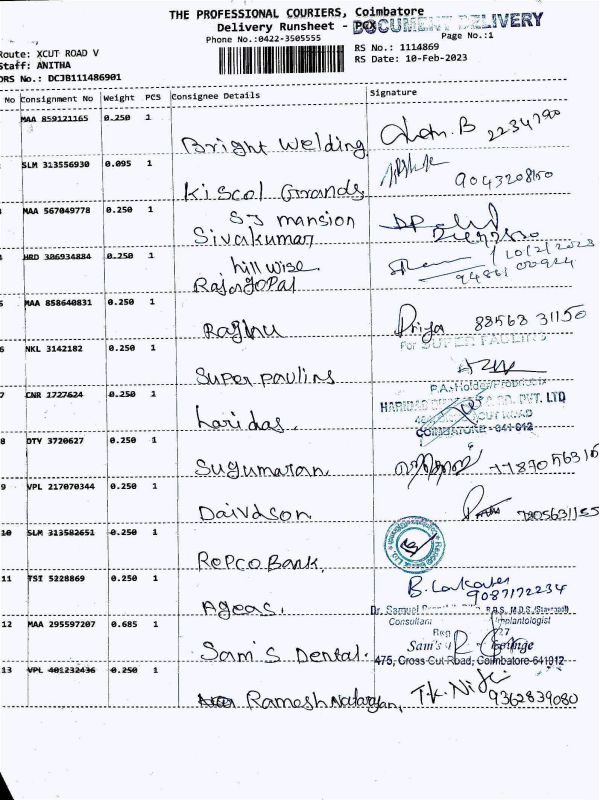 THE PROFESSIONAL COURIERS, Coimbatore
Delivery Runsheet - PCX
DOCUMENT DELIVERY
Phone No.:0422-3505555
Page No.:1
Route: XCUT ROAD V
RS No.: 1114869
Staff: ANITHA
RS Date: 10-Feb-2023
DRS No.: DCJB111486901
No Consignment No Weight PCS Consignee Details Signature
MAA 859121165 0.250 1
Bright Welding B 2234790
SLM 313556930 0.095 1
Kiscol Grands 9043208150
MAA 567049778 0.250 1
SJ mansion
Sivakumar
HRD 306934884 0.250 1
hill wise 10/2/2023
Rajagopal
5 MAA 858640831 0.250 1
Raghu Priya 88568 31150
For SUPER PAULINS
6 NKL 3142182 0.250 1
Super paulins
P.A. Holder/Proprietrix
7 CNR 1727624 0.250 1
PVT. LTD
haridas.
COIMBATORE - 641 012
8 DTY 3720627 0.250 1
Sugumaran
9 VPL 217070344 0.250 1
Daivdson
10 SLM 313582651 0.250 1
Repco Bank.
11 TSI 5228869 0.250 1
Ageas. 9087172234
Dr. Samuel
12 MAA 295597207 0.685 1
Consultant Implantologist
Sam's Dental. Sam's
475, Cross Cut Road, Coimbatore-641012
13 VPL 401232436 0.250 1
Ramesh Natarajan, T.K. 9362839080